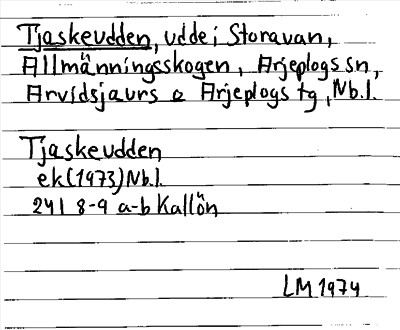 Tjaskeudden, udde i Storavan,
Allmänningsskogen, Arjeplogs sn,
Arvidsjaurs o Arjeplogs tg, Nb.l.
Tjaskeudden
ek (1973) Nb.l.
24I 8-9 a-b Kallön
LM 1974